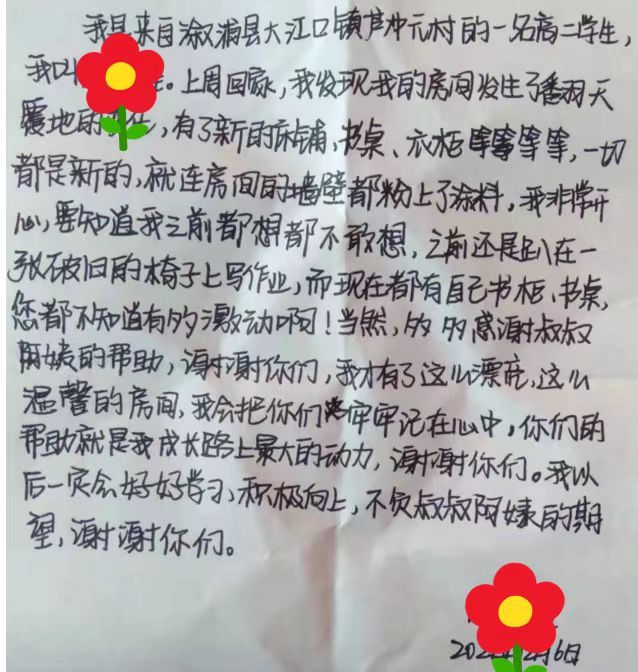 我是来自溆浦县大江口镇芦冲元村的一名高二学生,
我叫 。上周回家,我发现我的房间发生了番羽天
覆地的变化,有了新的床铺、书桌、衣柜等等等等,一切
都是新的,就连房间的墙壁都粉上了涂料,我非常开
心,要知道我之前都想都不敢想,之前还是趴在一
张破旧的椅子上写作业,而现在都有自己书柜、书桌,
您都不知道有多激动啊!当然,多多感谢叔叔
阿姨的帮助,谢谢你们,我才有了这么漂亮,这么
温馨的房间,我会把你们牢牢记在心中,你们的
帮助就是我成长路上最大的动力,谢谢你们。我以
后一定会好好学习、积极向上,不负叔叔阿姨的期
望,谢谢你们。
月6日